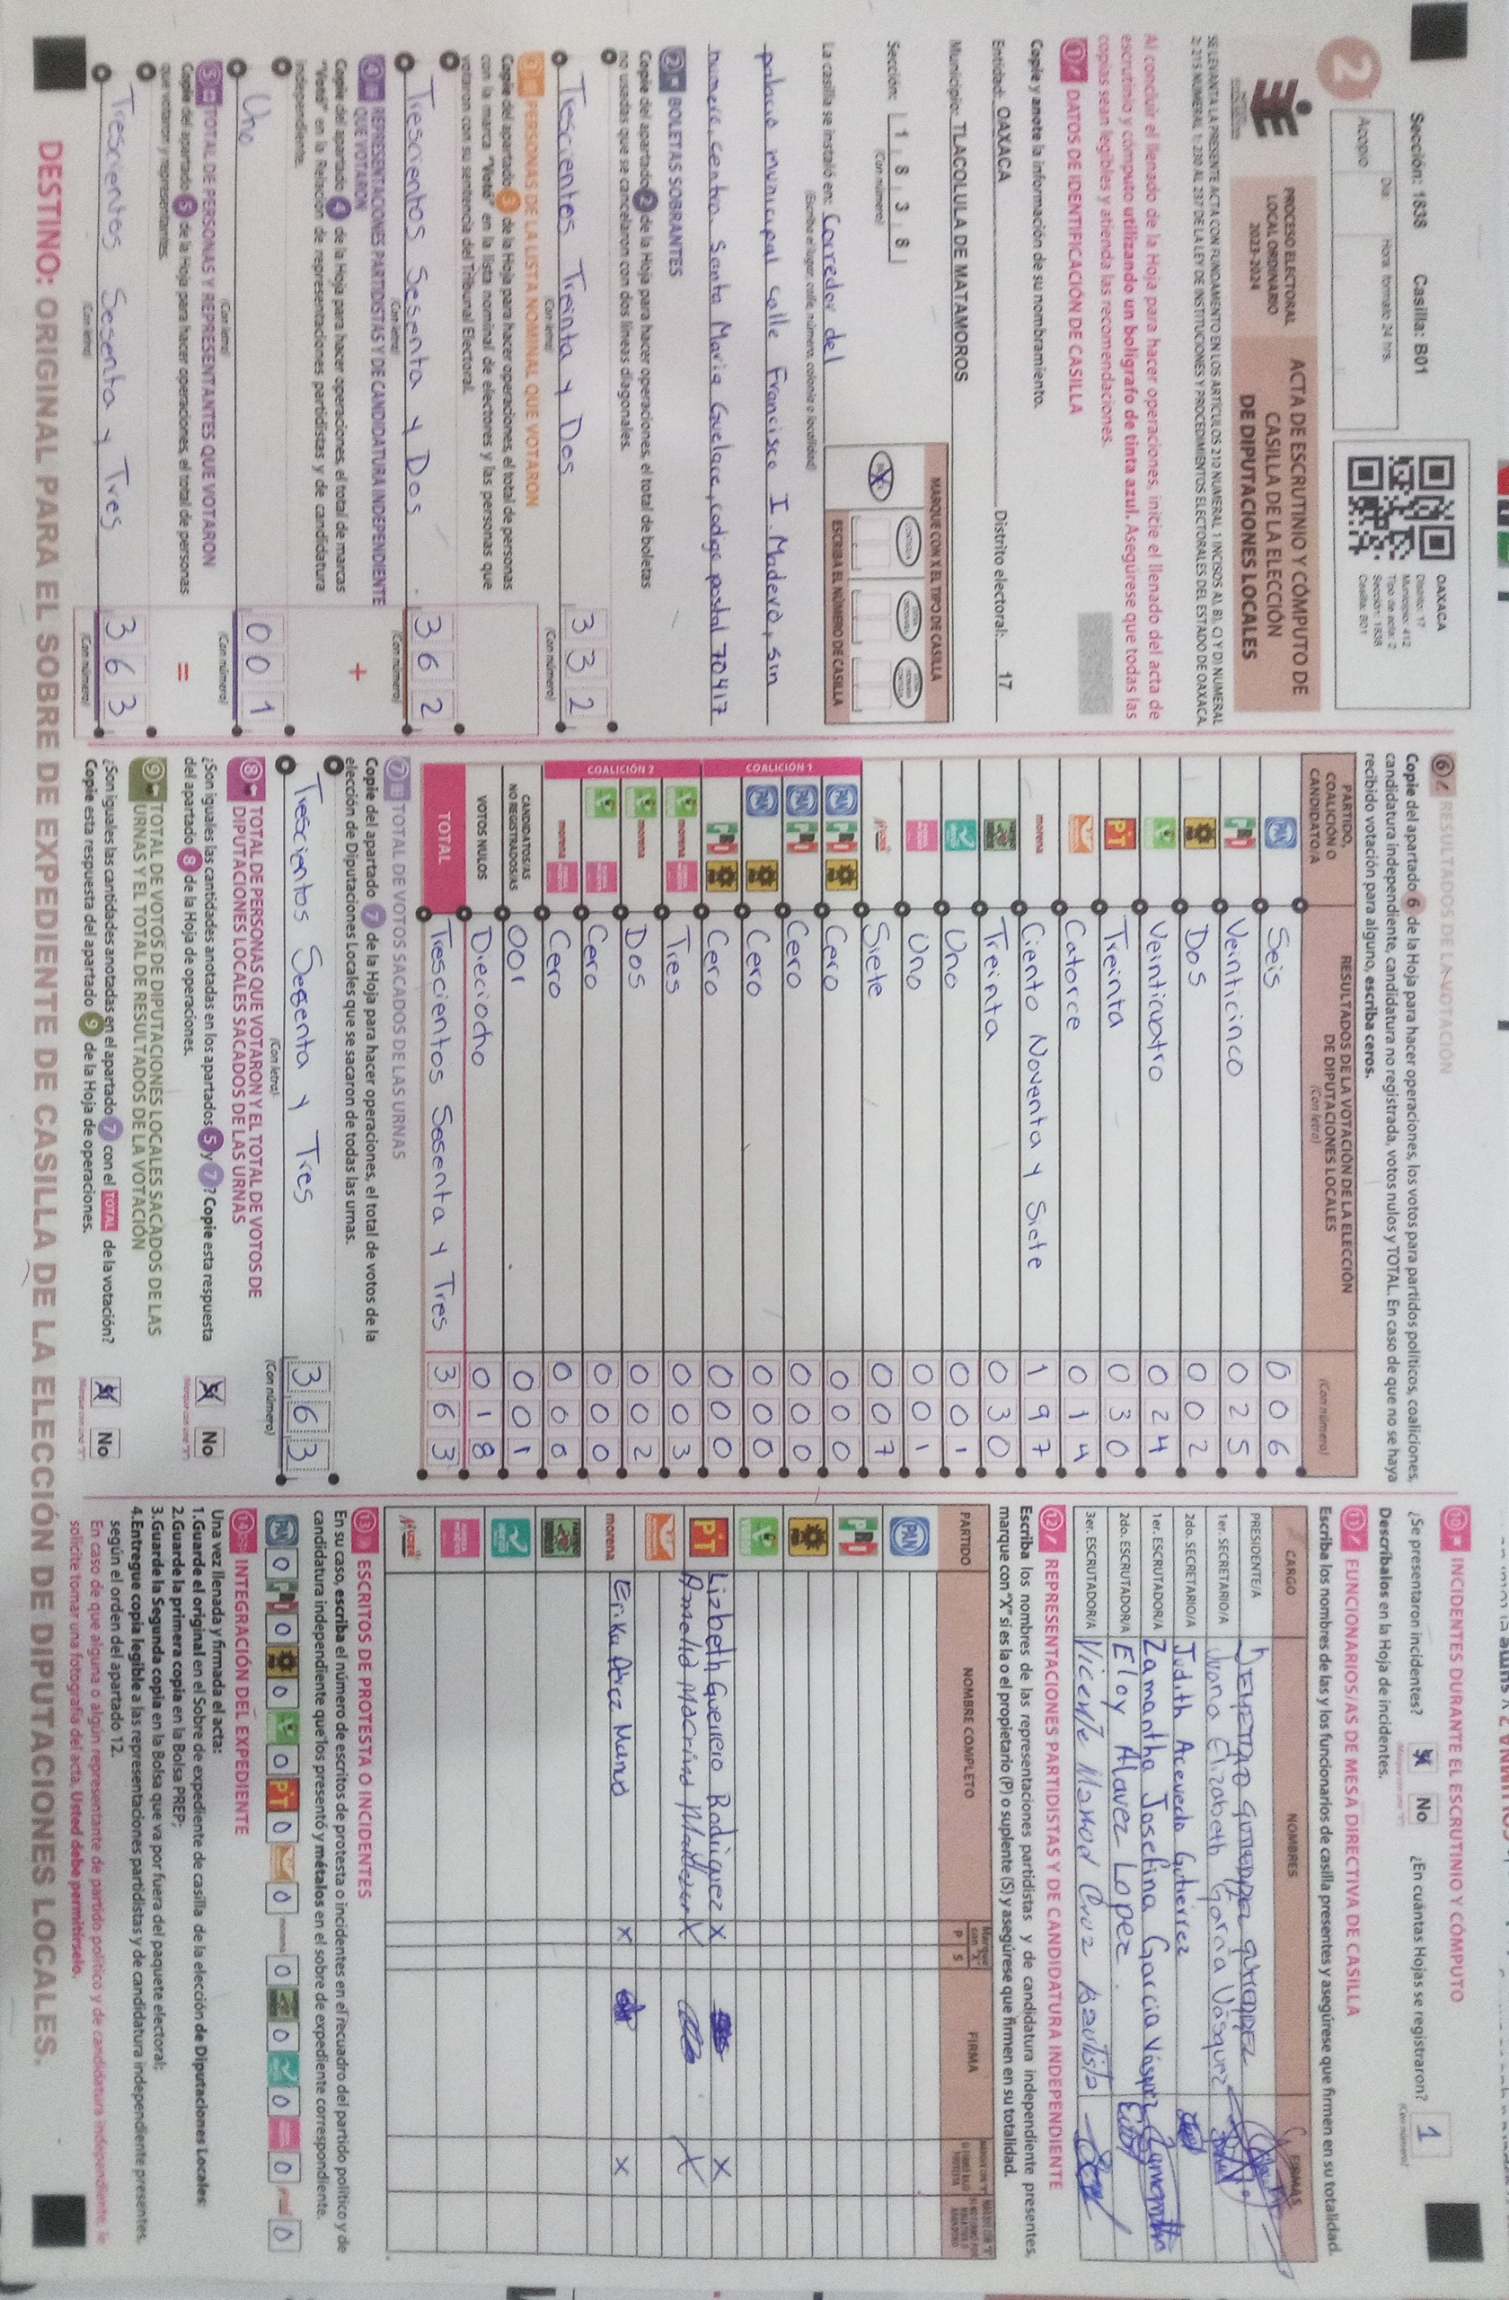 Sección: 1838 Casilla: B01
Día: Hora: formato 24 hrs.
Acopio
2
OAXACA
Distrito: 17
Municipio: 412
Tipo de acta: 2
Sección: 1838
Casilla: B01
PROCESO ELECTORAL
LOCAL ORDINARIO
2023-2024
ACTA DE ESCRUTINIO Y CÓMPUTO DE
CASILLA DE LA ELECCIÓN
DE DIPUTACIONES LOCALES
SE LEVANTA LA PRESENTE ACTA CON FUNDAMENTO EN LOS ARTÍCULOS 210 NUMERAL 1 INCISOS A), B), C) Y D) NUMERAL
2; 215 NUMERAL 1; 230 AL 237 DE LA LEY DE INSTITUCIONES Y PROCEDIMIENTOS ELECTORALES DEL ESTADO DE OAXACA.
Al concluir el llenado de la Hoja para hacer operaciones, inicie el llenado del acta de
escrutinio y cómputo utilizando un bolígrafo de tinta azul. Asegúrese que todas las
copias sean legibles y atienda las recomendaciones.
1 DATOS DE IDENTIFICACIÓN DE CASILLA
Copie y anote la información de su nombramiento.
Entidad: OAXACA Distrito electoral: 17
Municipio: TLACOLULA DE MATAMOROS
Sección: 1 8 3 8
(Con número)
MARQUE CON X EL TIPO DE CASILLA
ESCRIBA EL NÚMERO DE CASILLA
La casilla se instaló en: Corredor del
(Escriba el lugar, calle, número, colonia o localidad)
palacio municipal calle Francisco I. Madero, sin
numero, centro Santa Maria Guelace, codigo postal 70417
2 BOLETAS SOBRANTES
Copie del apartado 2 de la Hoja para hacer operaciones, el total de boletas
no usadas que se cancelaron con dos líneas diagonales.
Trescientos Treinta y Dos 332
(Con letra) (Con número)
3 PERSONAS DE LA LISTA NOMINAL QUE VOTARON
Copie del apartado 3 de la Hoja para hacer operaciones, el total de personas
con la marca "Votó" en la lista nominal de electores y las personas que
votaron con su sentencia del Tribunal Electoral.
Trescientos Sesenta y Dos 362
(Con letra) (Con número)
4 REPRESENTACIONES PARTIDISTAS Y DE CANDIDATURA INDEPENDIENTE
QUE VOTARON
Copie del apartado 4 de la Hoja para hacer operaciones, el total de marcas
"Votó" en la Relación de representaciones partidistas y de candidatura
independiente.
+
Uno 001
(Con letra) (Con número)
5 TOTAL DE PERSONAS Y REPRESENTANTES QUE VOTARON
Copie del apartado 5 de la Hoja para hacer operaciones, el total de personas
que votaron y representantes.
=
Trescientos Sesenta y Tres 363
(Con letra) (Con número)
6 RESULTADOS DE LA VOTACIÓN
Copie del apartado 6 de la Hoja para hacer operaciones, los votos para partidos políticos, coaliciones,
candidatura independiente, candidatura no registrada, votos nulos y TOTAL. En caso de que no se haya
recibido votación para alguno, escriba ceros.
PARTIDO, COALICIÓN O CANDIDATO/A
RESULTADOS DE LA VOTACIÓN DE LA ELECCIÓN
DE DIPUTACIONES LOCALES
(Con letra) (Con número)
PAN Seis 006
PRI Veinticinco 025
PRD Dos 002
VERDE Veinticuatro 024
PT Treinta 030
Catorce 014
morena Ciento Noventa y Siete 197
Treinta 030
Uno 001
Uno 001
Siete 007
COALICIÓN 1
PAN PRI PRD Cero 000
PAN PRI Cero 000
PAN PRD Cero 000
PRI PRD Cero 000
COALICIÓN 2
VERDE morena Tres 003
VERDE morena Dos 002
VERDE Cero 000
morena Cero 000
CANDIDATOS/AS NO REGISTRADOS/AS 001 001
VOTOS NULOS Dieciocho 018
TOTAL Trescientos Sesenta y Tres 363
7 TOTAL DE VOTOS SACADOS DE LAS URNAS
Copie del apartado 7 de la Hoja para hacer operaciones, el total de votos de la
elección de Diputaciones Locales que se sacaron de todas las urnas.
Trescientos Sesenta y Tres 363
(Con letra) (Con número)
8 TOTAL DE PERSONAS QUE VOTARON Y EL TOTAL DE VOTOS DE
DIPUTACIONES LOCALES SACADOS DE LAS URNAS
¿Son iguales las cantidades anotadas en los apartados 5 y 7? Copie esta respuesta
del apartado 8 de la Hoja de operaciones.
Sí No
9 TOTAL DE VOTOS DE DIPUTACIONES LOCALES SACADOS DE LAS
URNAS Y EL TOTAL DE RESULTADOS DE LA VOTACIÓN
¿Son iguales las cantidades anotadas en el apartado 7 con el TOTAL de la votación?
Copie esta respuesta del apartado 9 de la Hoja de operaciones.
Sí No
10 INCIDENTES DURANTE EL ESCRUTINIO Y CÓMPUTO
¿Se presentaron incidentes? Sí No ¿En cuántas Hojas se registraron? 1
(Con número)
Descríbalos en la Hoja de incidentes.
11 FUNCIONARIOS/AS DE MESA DIRECTIVA DE CASILLA
Escriba los nombres de las y los funcionarios de casilla presentes y asegúrese que firmen en su totalidad.
CARGO NOMBRES FIRMAS
PRESIDENTE/A
1er. SECRETARIO/A Juana Elizabeth García Vásquez
2do. SECRETARIO/A Judith Acevedo Gutierrez
1er. ESCRUTADOR/A Zamantha Josefina García Vásquez
2do. ESCRUTADOR/A Eloy Alavez Lopez.
3er. ESCRUTADOR/A Vicente Cruz Bautista
12 REPRESENTACIONES PARTIDISTAS Y DE CANDIDATURA INDEPENDIENTE
Escriba los nombres de las representaciones partidistas y de candidatura independiente presentes,
marque con "X" si es la o el propietario (P) o suplente (S) y asegúrese que firmen en su totalidad.
PARTIDO NOMBRE COMPLETO Marque con "X" P S FIRMA
PAN
PRI
PRD
VERDE
PT Lizbeth Guerrero Rodriguez X X
Amelia X X
morena Erika Pérez X X
13 ESCRITOS DE PROTESTA O INCIDENTES
En su caso, escriba el número de escritos de protesta o incidentes en el recuadro del partido político y de
candidatura independiente que los presentó y métalos en el sobre de expediente correspondiente.
PAN 0 PRI 0 PRD 0 VERDE 0 PT 0 0 morena 0 0 0 0 0
14 INTEGRACIÓN DEL EXPEDIENTE
Una vez llenada y firmada el acta:
1.Guarde el original en el Sobre de expediente de casilla de la elección de Diputaciones Locales;
2.Guarde la primera copia en la Bolsa PREP;
3.Guarde la Segunda copia en la Bolsa que va por fuera del paquete electoral;
4.Entregue copia legible a las representaciones partidistas y de candidatura independiente presentes,
según el orden del apartado 12.
En caso de que alguna o algún representante de partido político y de candidatura independiente, le
solicite tomar una fotografía del acta, Usted debe permitírselo.
DESTINO: ORIGINAL PARA EL SOBRE DE EXPEDIENTE DE CASILLA DE LA ELECCIÓN DE DIPUTACIONES LOCALES.